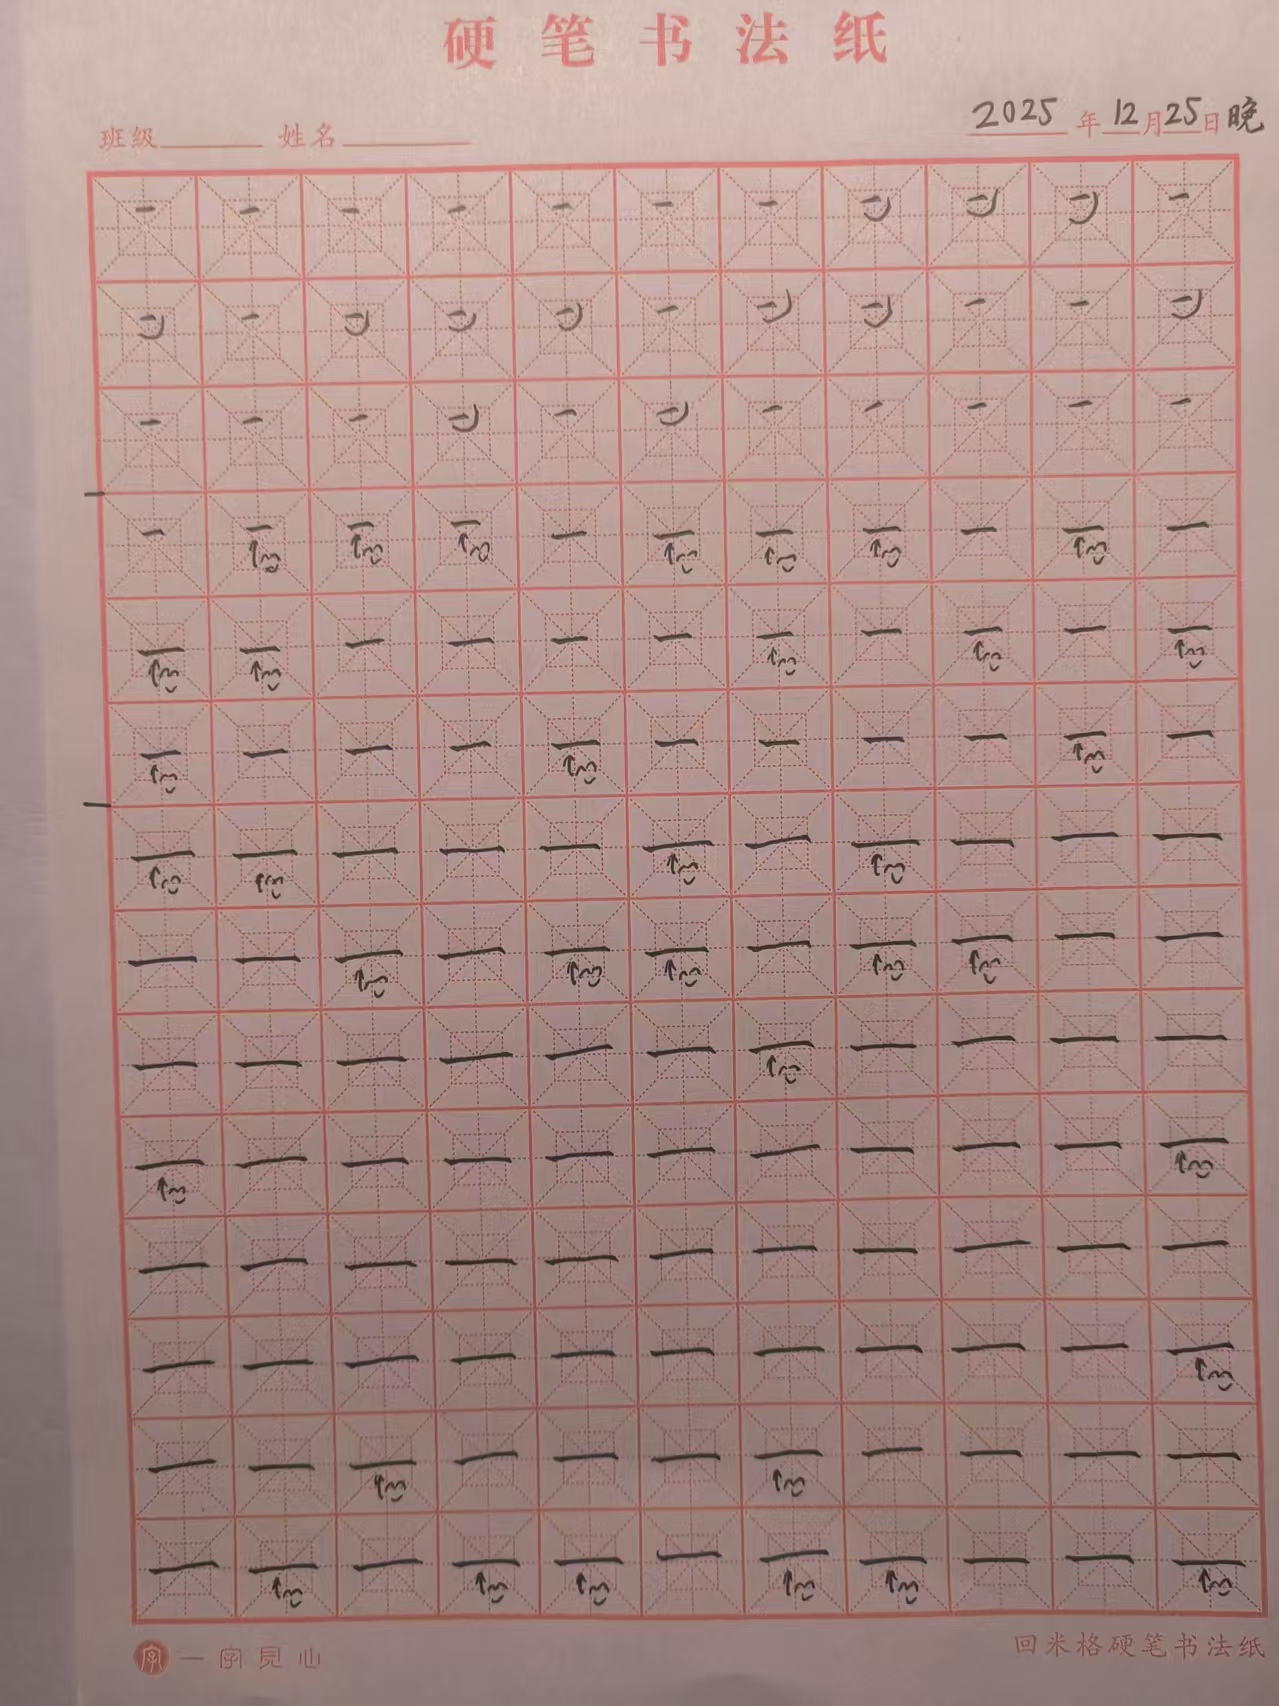 硬笔书法纸
班级 姓名 2025年12月25日晚
一 一 一 一 一 一 一 一 一 一 一
一 一 一 一 一 一 一 一 一 一 一
一 一 一 一 一 一 一 一 一 一 一
一 一 一 一 一 一 一 一 一 一 一
一 一 一 一 一 一 一 一 一 一 一
一 一 一 一 一 一 一 一 一 一 一
一 一 一 一 一 一 一 一 一 一 一
一 一 一 一 一 一 一 一 一 一 一
一 一 一 一 一 一 一 一 一 一 一
一 一 一 一 一 一 一 一 一 一 一
一 一 一 一 一 一 一 一 一 一 一
一 一 一 一 一 一 一 一 一 一 一
一 一 一 一 一 一 一 一 一 一 一
一 一 一 一 一 一 一 一 一 一 一
字 一字見心 回米格硬笔书法纸